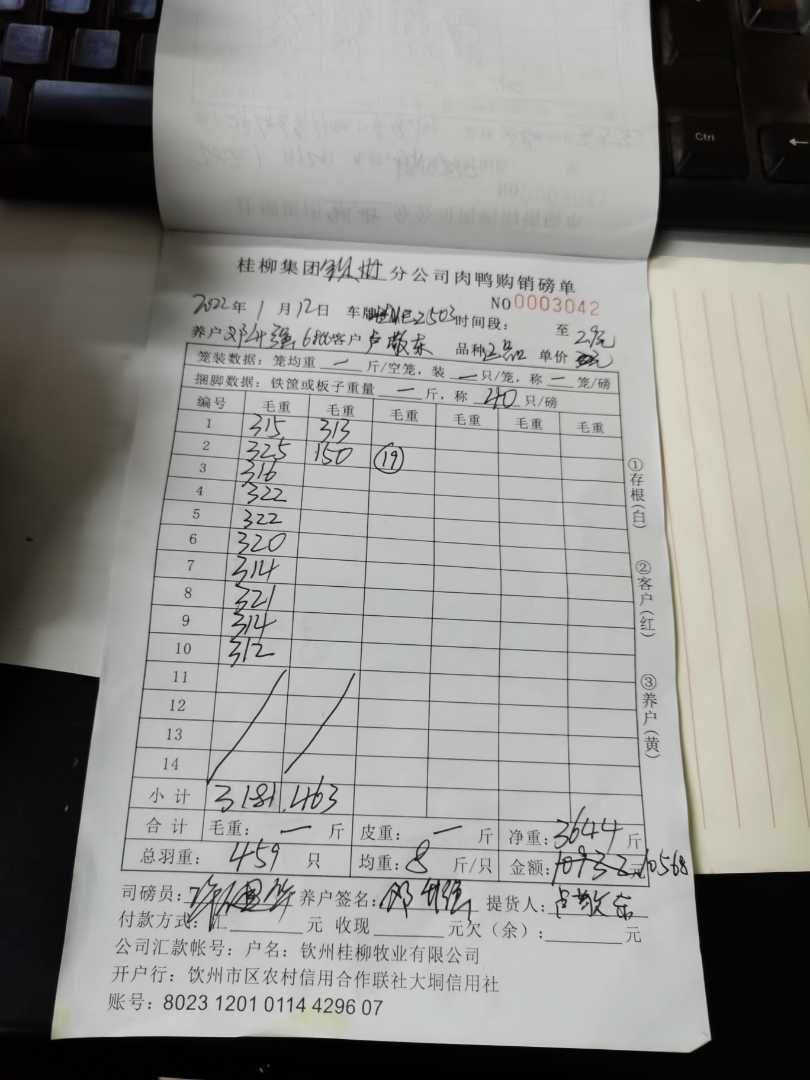 Ctrl
桂柳集团钦州分公司肉鸭购销磅单
NO0003042
2022年1月12日 车牌 2503时间段: 至
养户邓强6批客户卢敬东 品种正品 单价 2.9元
笼装数据:笼均重 — 斤/空笼,装 — 只/笼,称 — 笼/磅
捆脚数据:铁筐或板子重量 — 斤,称 40 只/磅
编号 毛重 毛重 毛重 毛重 毛重 毛重
1 315 313
2 325 150 19
3 316
4 322
5 322
6 320
7 314
8 321
9 314
10 312
11
12
13
14
小计 3181 463
合计 毛重: — 斤 皮重: — 斤 净重:3644斤
总羽重: 459 只 均重:8 斤/只 金额: 元10568
①存根(白)
②客户(红)
③养户(黄)
司磅员: 养户签名:邓 强 提货人:卢敬东
付款方式:汇 元 收现 元欠(余): 元
公司汇款帐号:户名:钦州桂柳牧业有限公司
开户行:饮州市区农村信用合作联社大垌信用社
账号:8023 1201 0114 4296 07